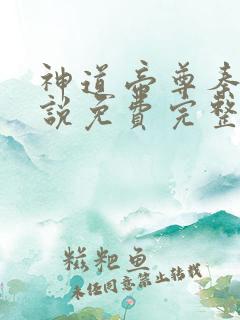 神道帝尊秦
说免费完整
糍粑鱼
未经同意禁止转载